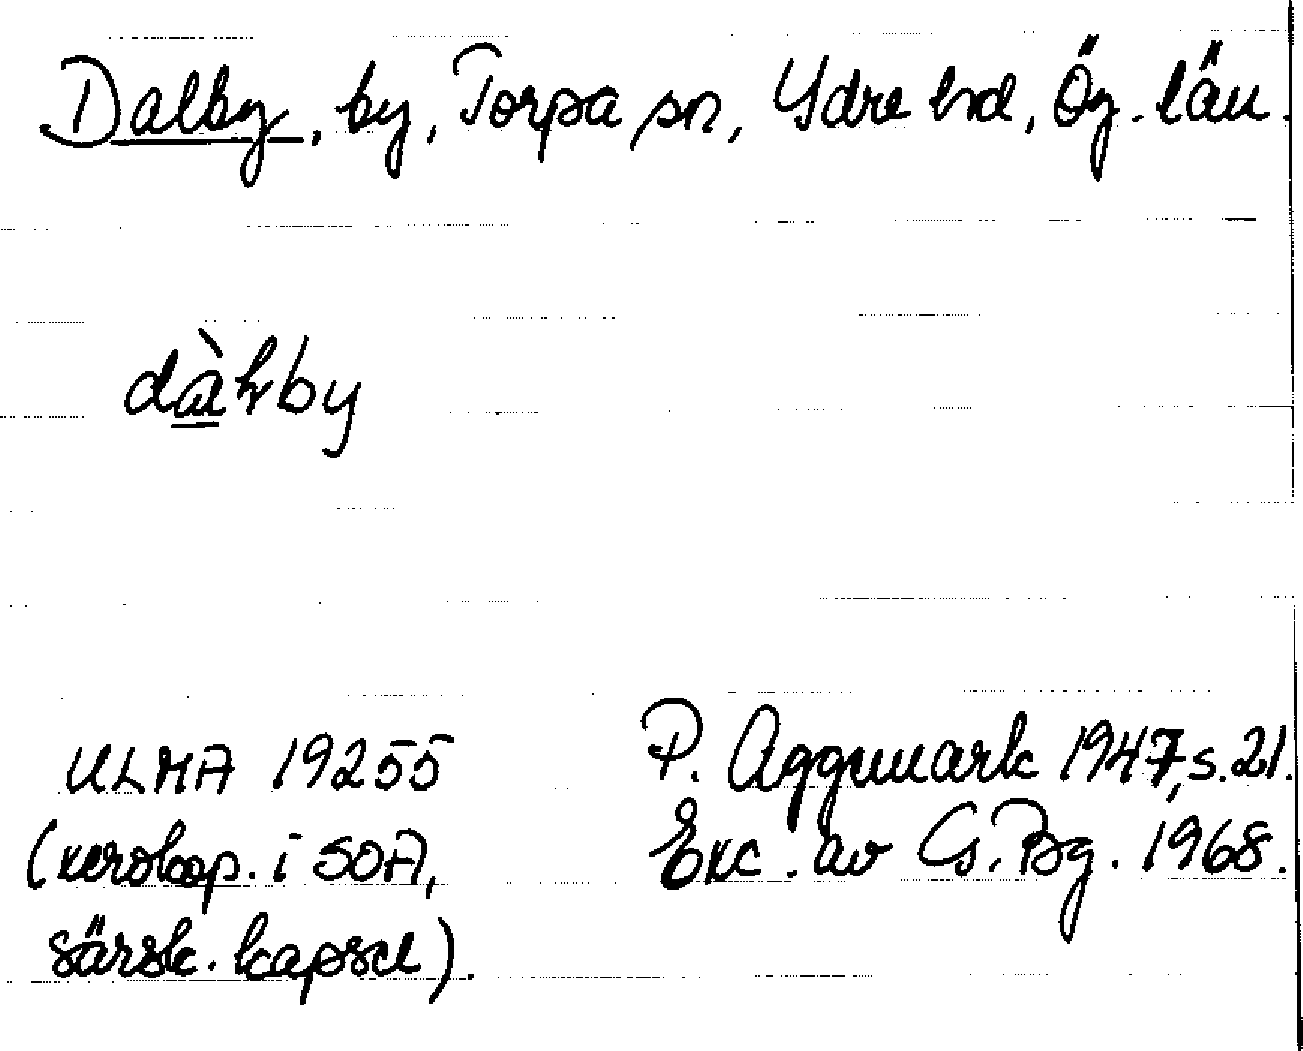 Dalby, by, Torpa sn, Ydre hd, Ög. län.
dàɫby
ULMA 19255
(xerokop. i SOA,
särsk. kapsel).
P. Aggemark 1947, s. 21.
Exc. av G. Bg. 1968.